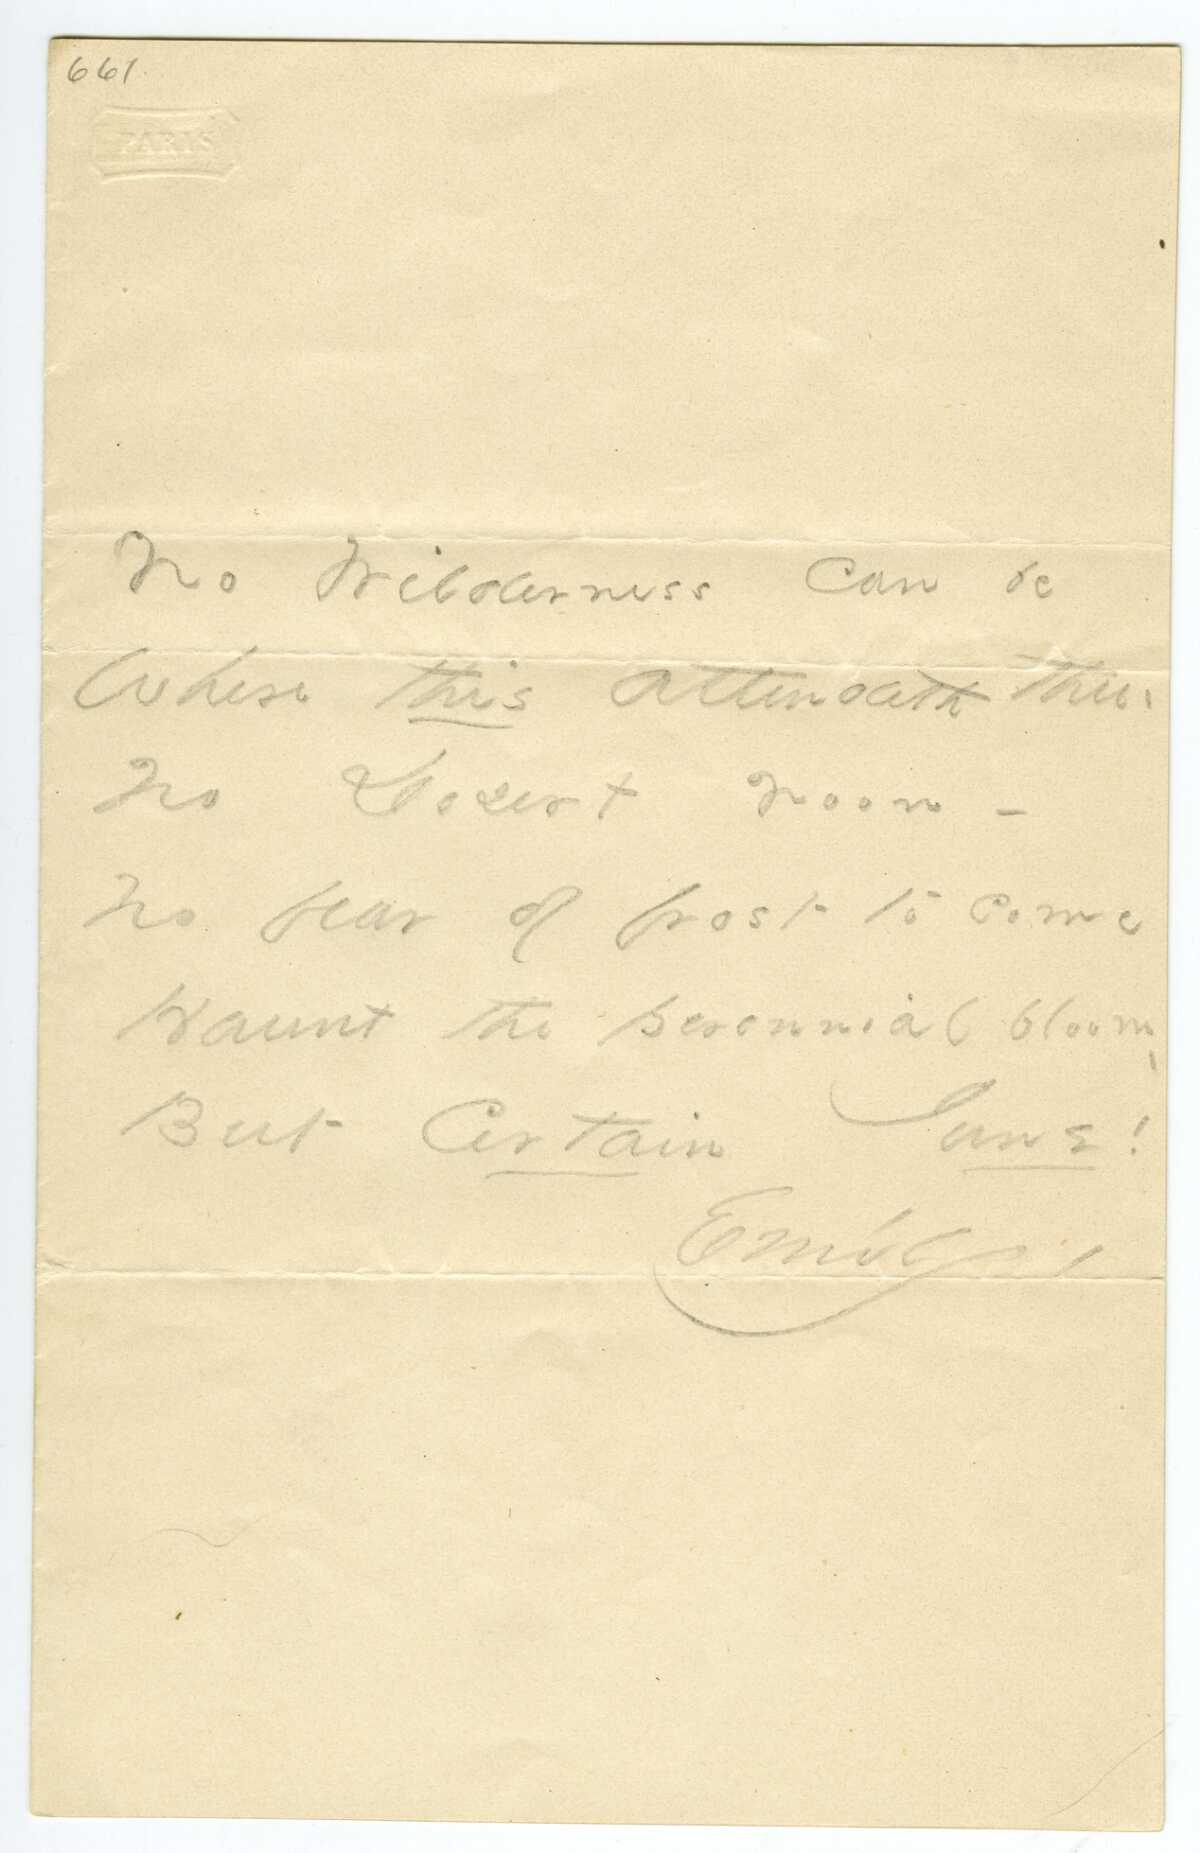 661
PARIS
No Wilderness can be
Where this attendeth thee.
No Desert Noon -
No fear of frost to come
Haunt the perennial bloom,
But Certain June!
Emily.